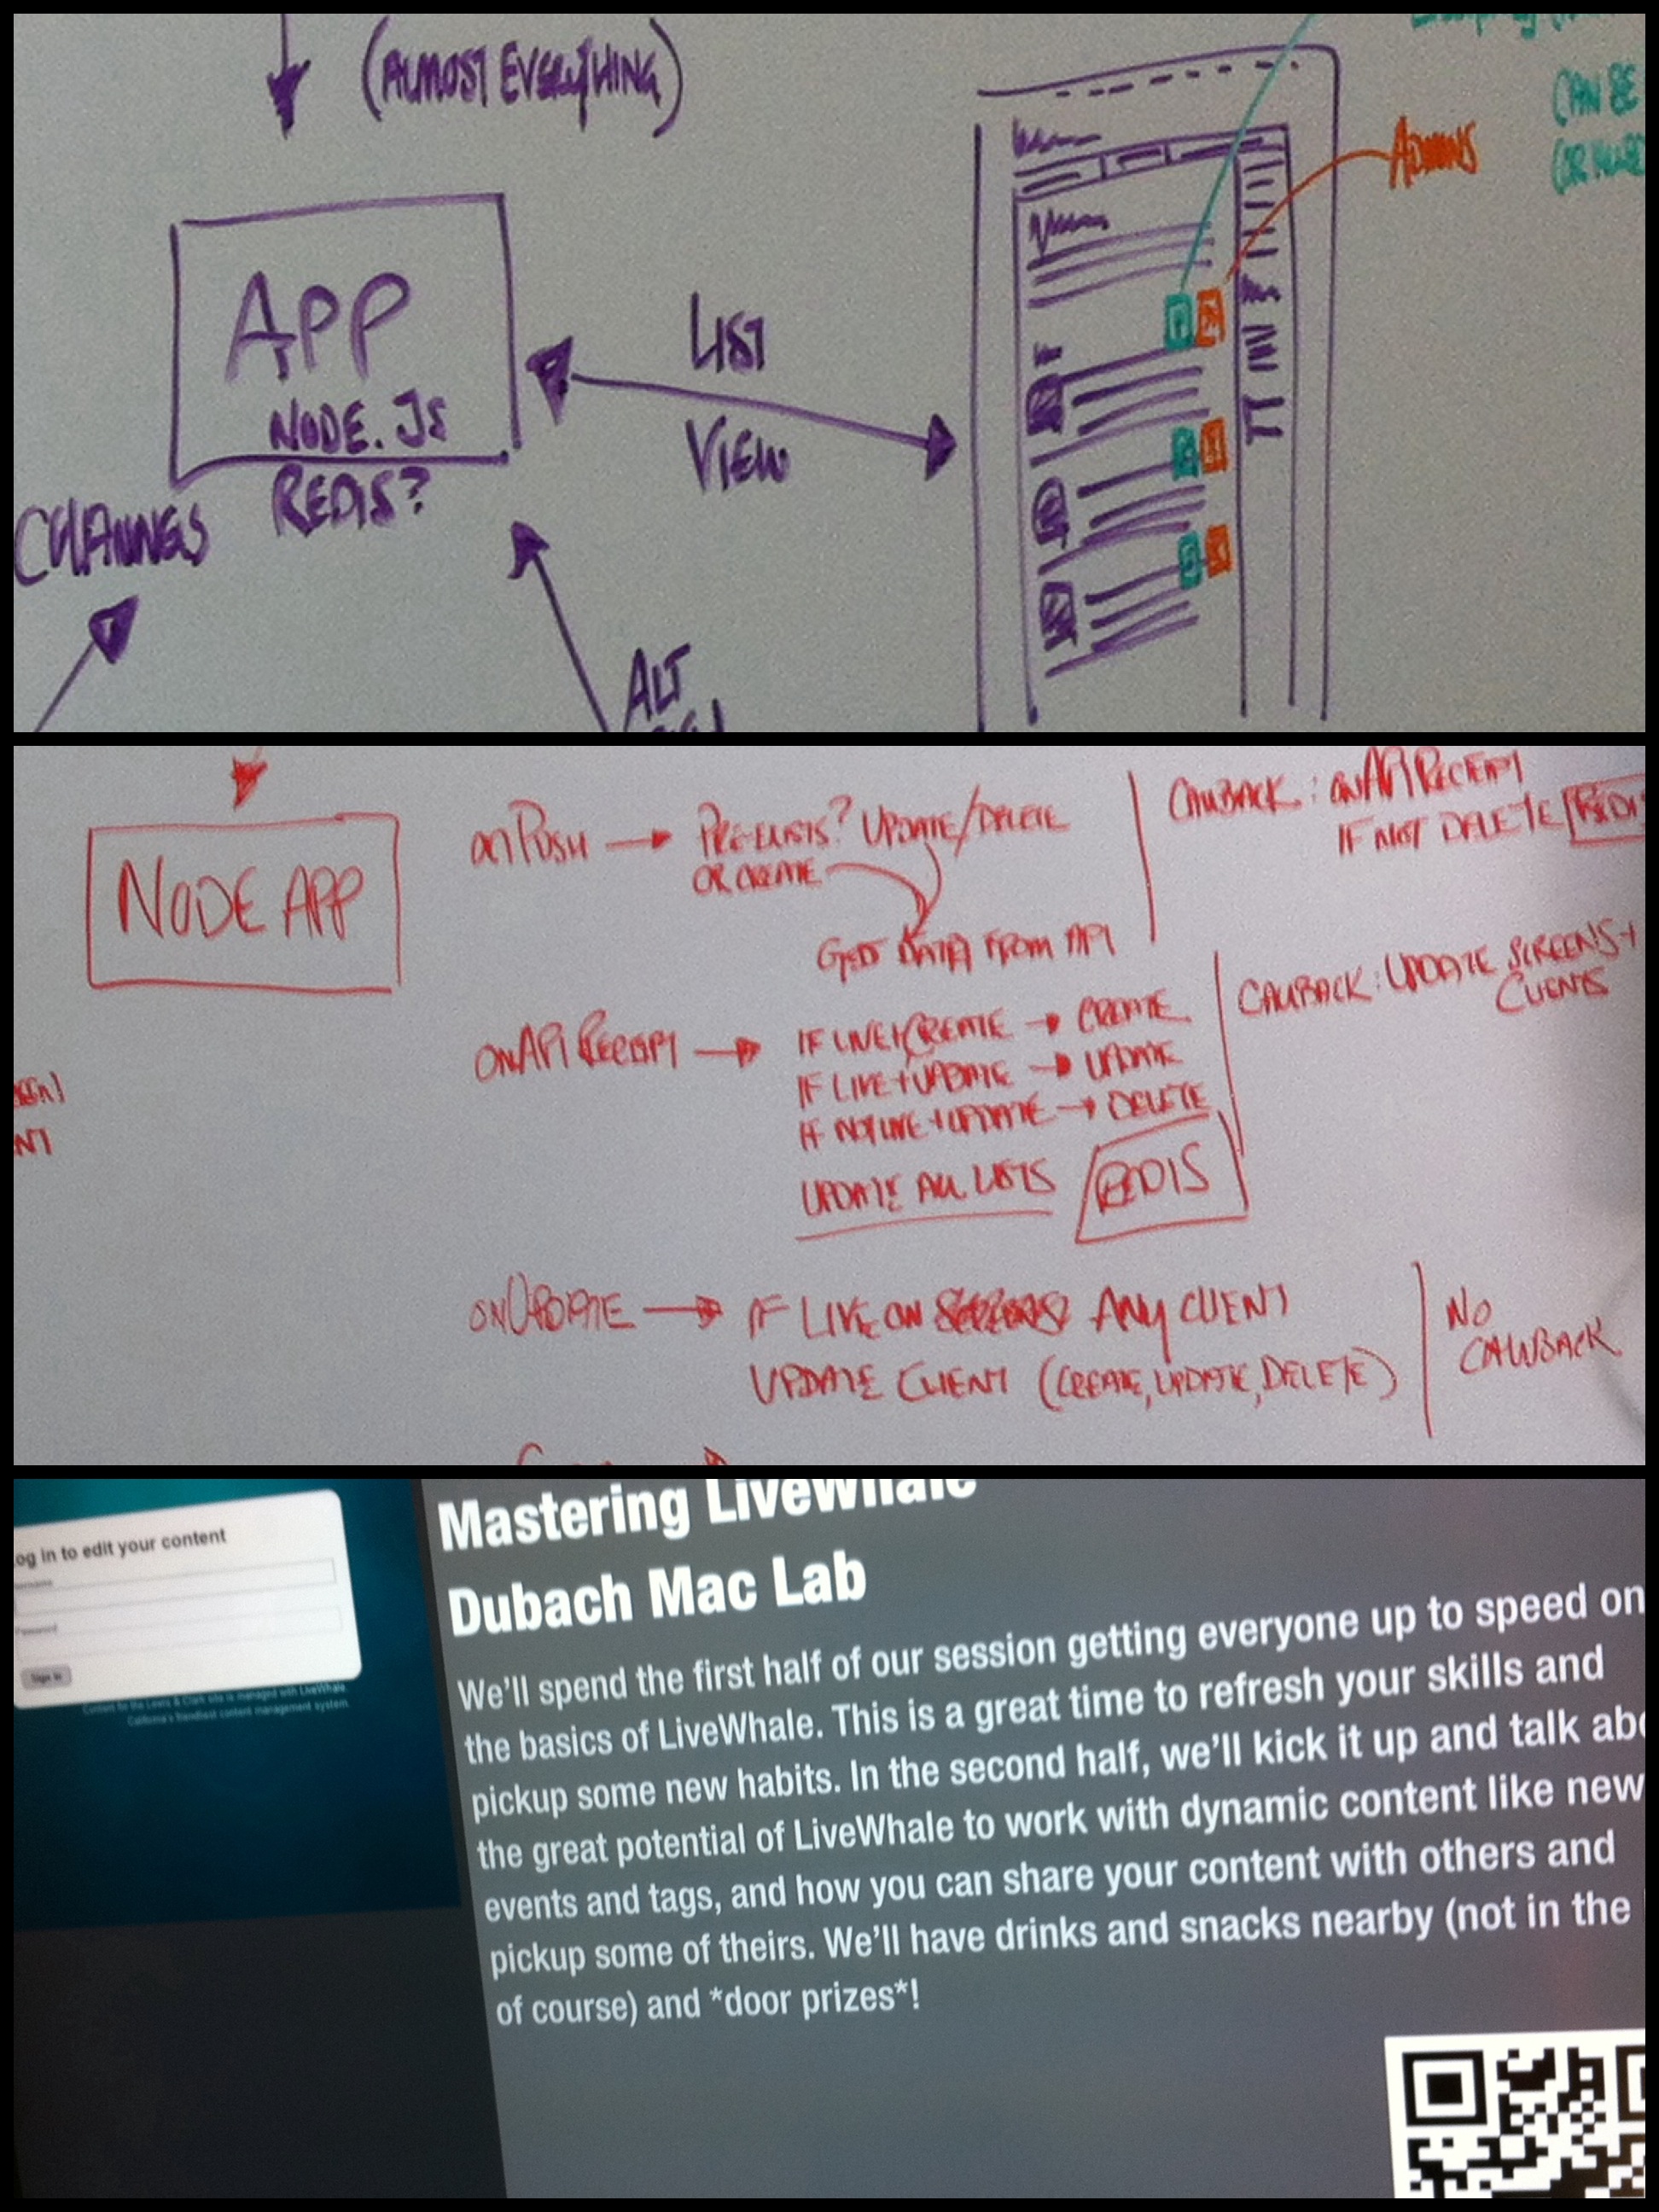 (ALMOST EVERYTHING)
CAN BE
(OR
ADMINS
APP
NODE.JS
REDIS?
LIST
VIEW
CHANNELS
ALT
NODE APP
onPUSH → PRE-EXISTS? UPDATE/DELETE
OR CREATE
GET DATA FROM API
CALLBACK: onAPI RECEIPT
IF NOT DELETE
onAPI RECEIPT → IF LIVE+CREATE → CREATE
IF LIVE+UPDATE → UPDATE
IF NOT LIVE+UPDATE → DELETE
UPDATE ALL LISTS REDIS
CALLBACK: UPDATE SCREENS+
CLIENTS
NT
onUPDATE → IF LIVE ON ANY CLIENT
UPDATE CLIENT (CREATE, UPDATE, DELETE)
NO
CALLBACK
og in to edit your content
Password
Sign In
Content for the Lewis & Clark site is managed with LiveWhale.
California's friendliest content management system.
Mastering LiveWhale
Dubach Mac Lab
We'll spend the first half of our session getting everyone up to speed on
the basics of LiveWhale. This is a great time to refresh your skills and
pickup some new habits. In the second half, we'll kick it up and talk abo
the great potential of LiveWhale to work with dynamic content like new
events and tags, and how you can share your content with others and
pickup some of theirs. We'll have drinks and snacks nearby (not in the
of course) and *door prizes*!